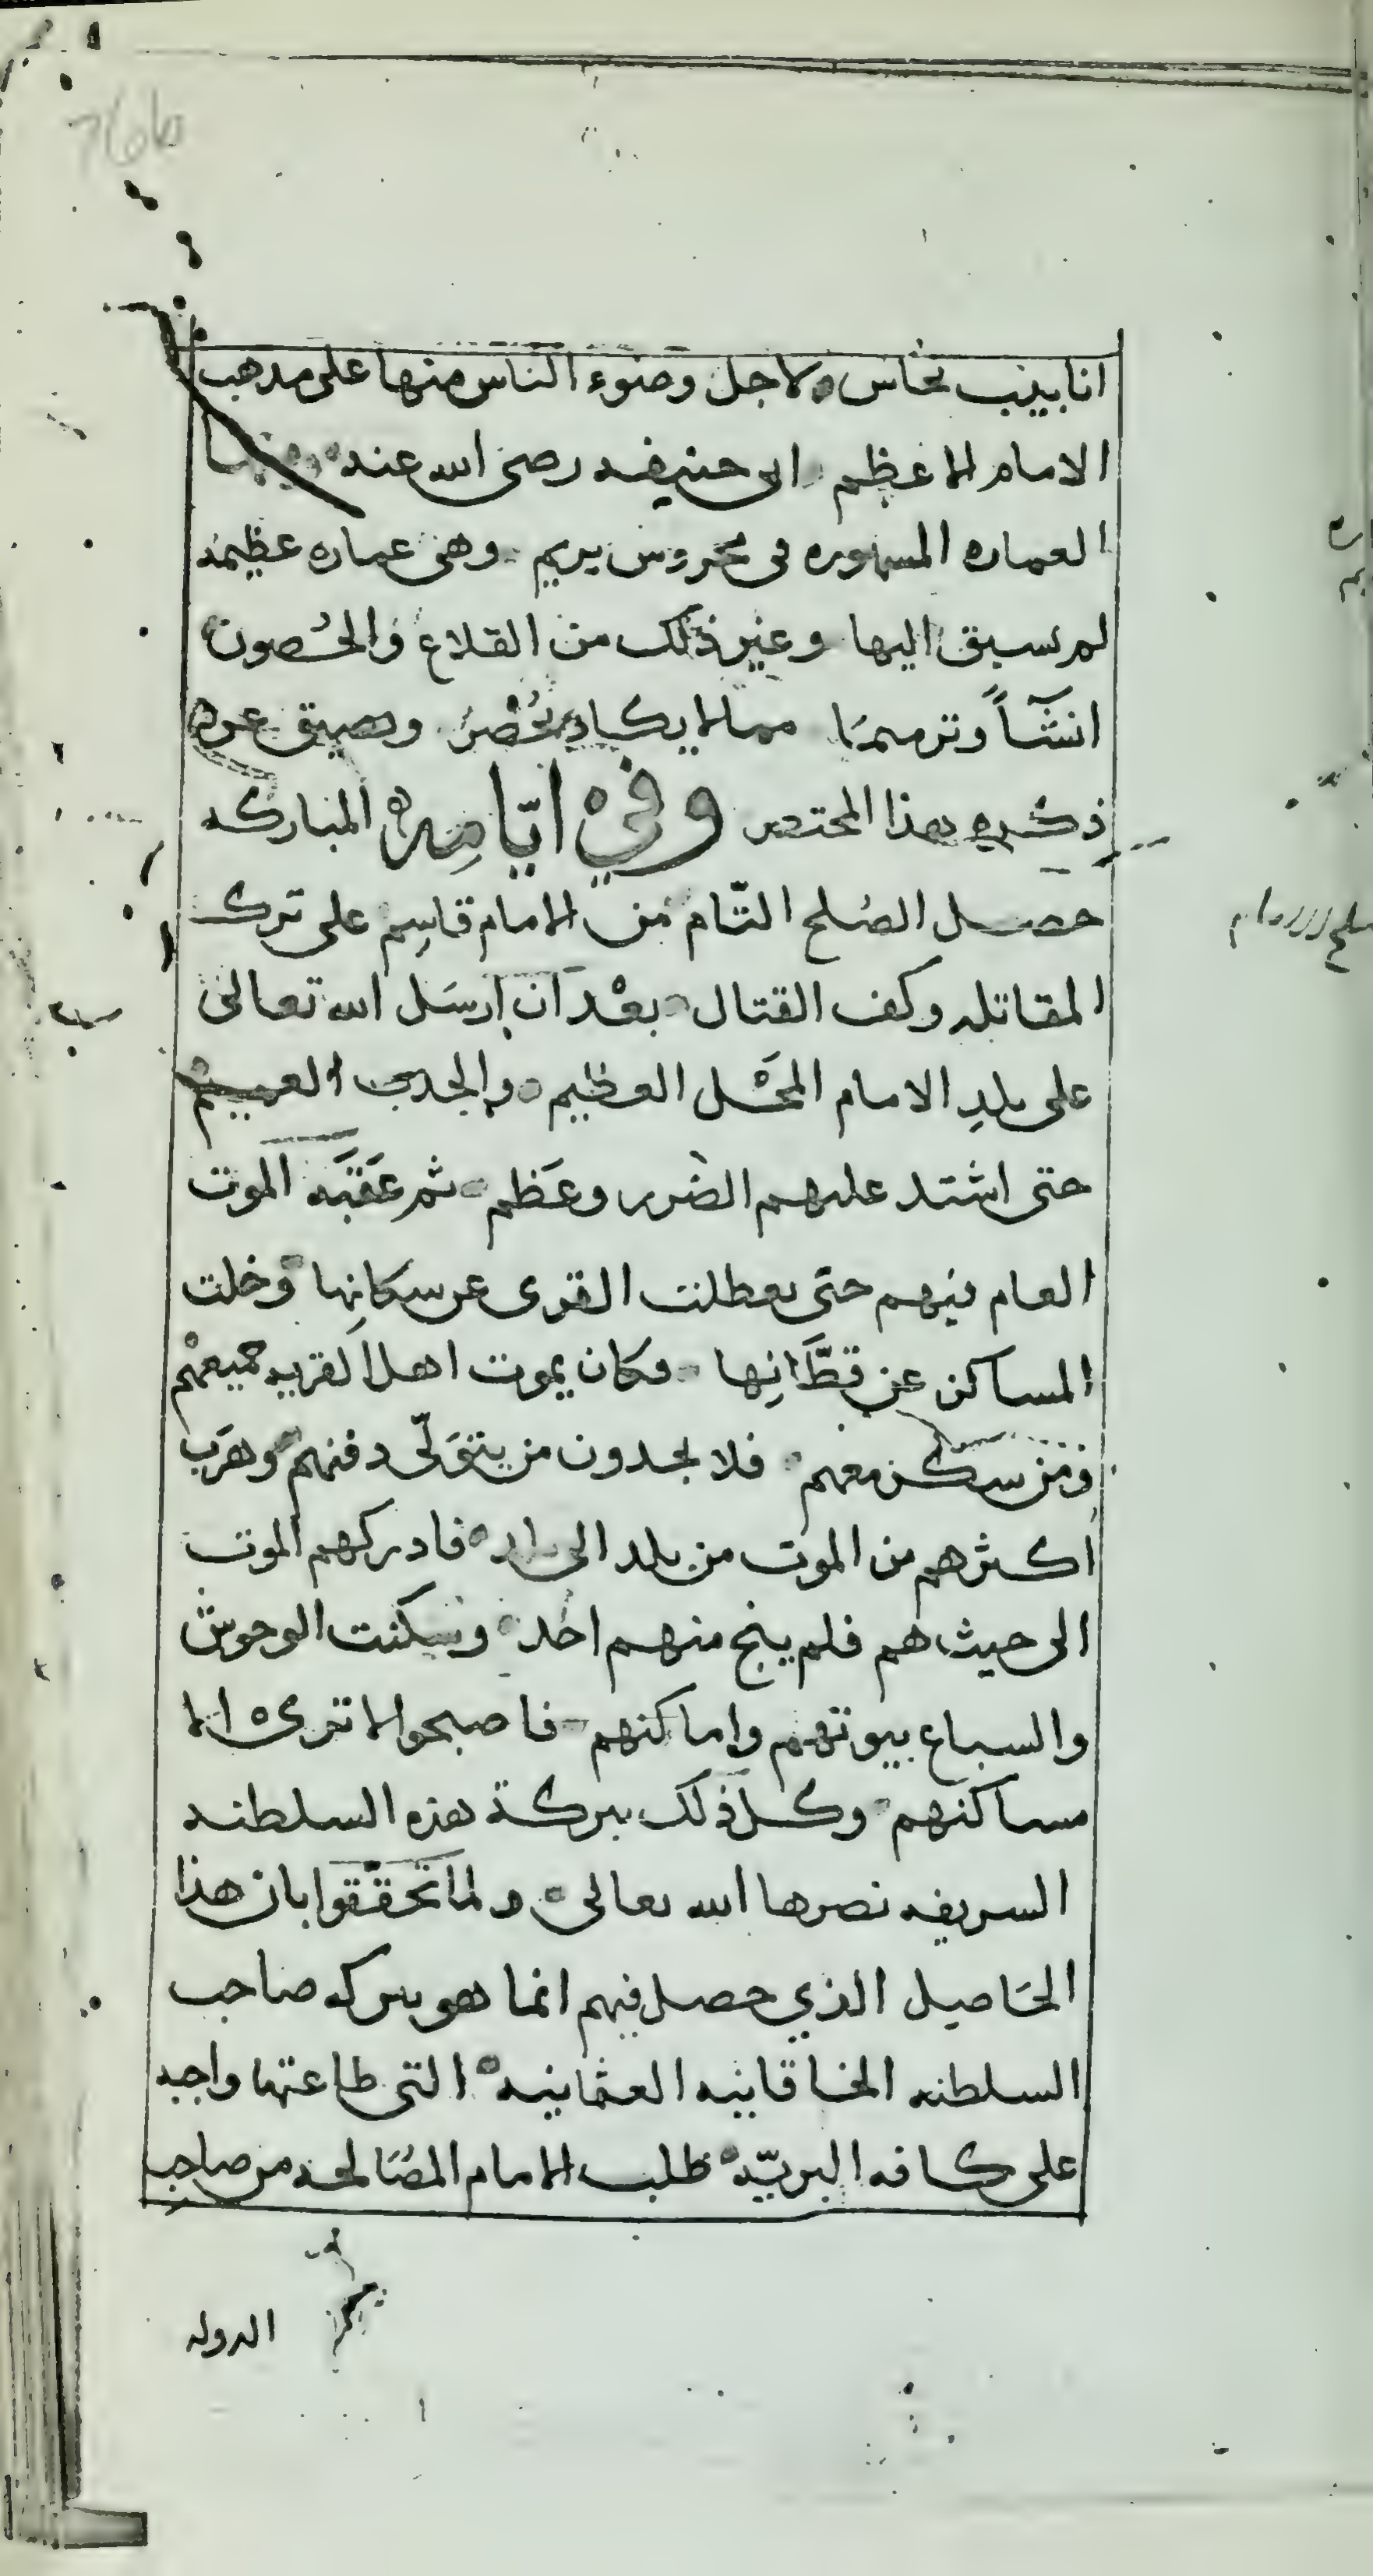 76b
انابيب نحاس ولاجل وضوء الناس منها على مدهب
الامام الاعظم ابى حنيفه رضى الله عنه
العماره المشهوره فى محروس يريم وهى عماره عظيمه
لم تسبق اليها وغير ذلك من القلاع والحُصون
انشآً وترميمًا مما لا يكاد يُحْصَرُ ويضيق عن
ذكره هذا المختصر وفي ايّامِه المباركه
حصل الصُلح التّام من الامام قاسِم على ترك
المقاتله وكف القتال بعْد اَن ارسَل الله تعالى
على بلدِ الامام المحَْل العظيم والجدب العميم
حتى اشتد عليهم الضرر وعَظم ثم عَقَبَه الموت
العام فيهم حتى تعطلت القرى عن سكانِها وخلت
المساكن عن قطَّانِها وكان يموت اهل القريه جميعهُم
ومن سكن معهم فلا يجدون من يتوَلّى دفنهم وهرَب
اكثرهم من الموت من بلد الى بلد فادركهم الموت
الى حيث هم فلم ينج منهم احد وسكنت الوحوش
والسباع بيوتهم واماكنهم فاصبحوا لا ترى الا
مساكنهم وكل ذلك ببركة هذه السلطنه
الشريفه نصرها الله تعالى ولما تحَقّقوا بان هذا
الحَاصل الذي حصل فيهم انما هو ببركه صاحب
السلطنه الخاقانيه العثمانيه التى طاعتها واجبه
على كافه البريّه طلب الامام المصَالحه من صاحب
الدوله